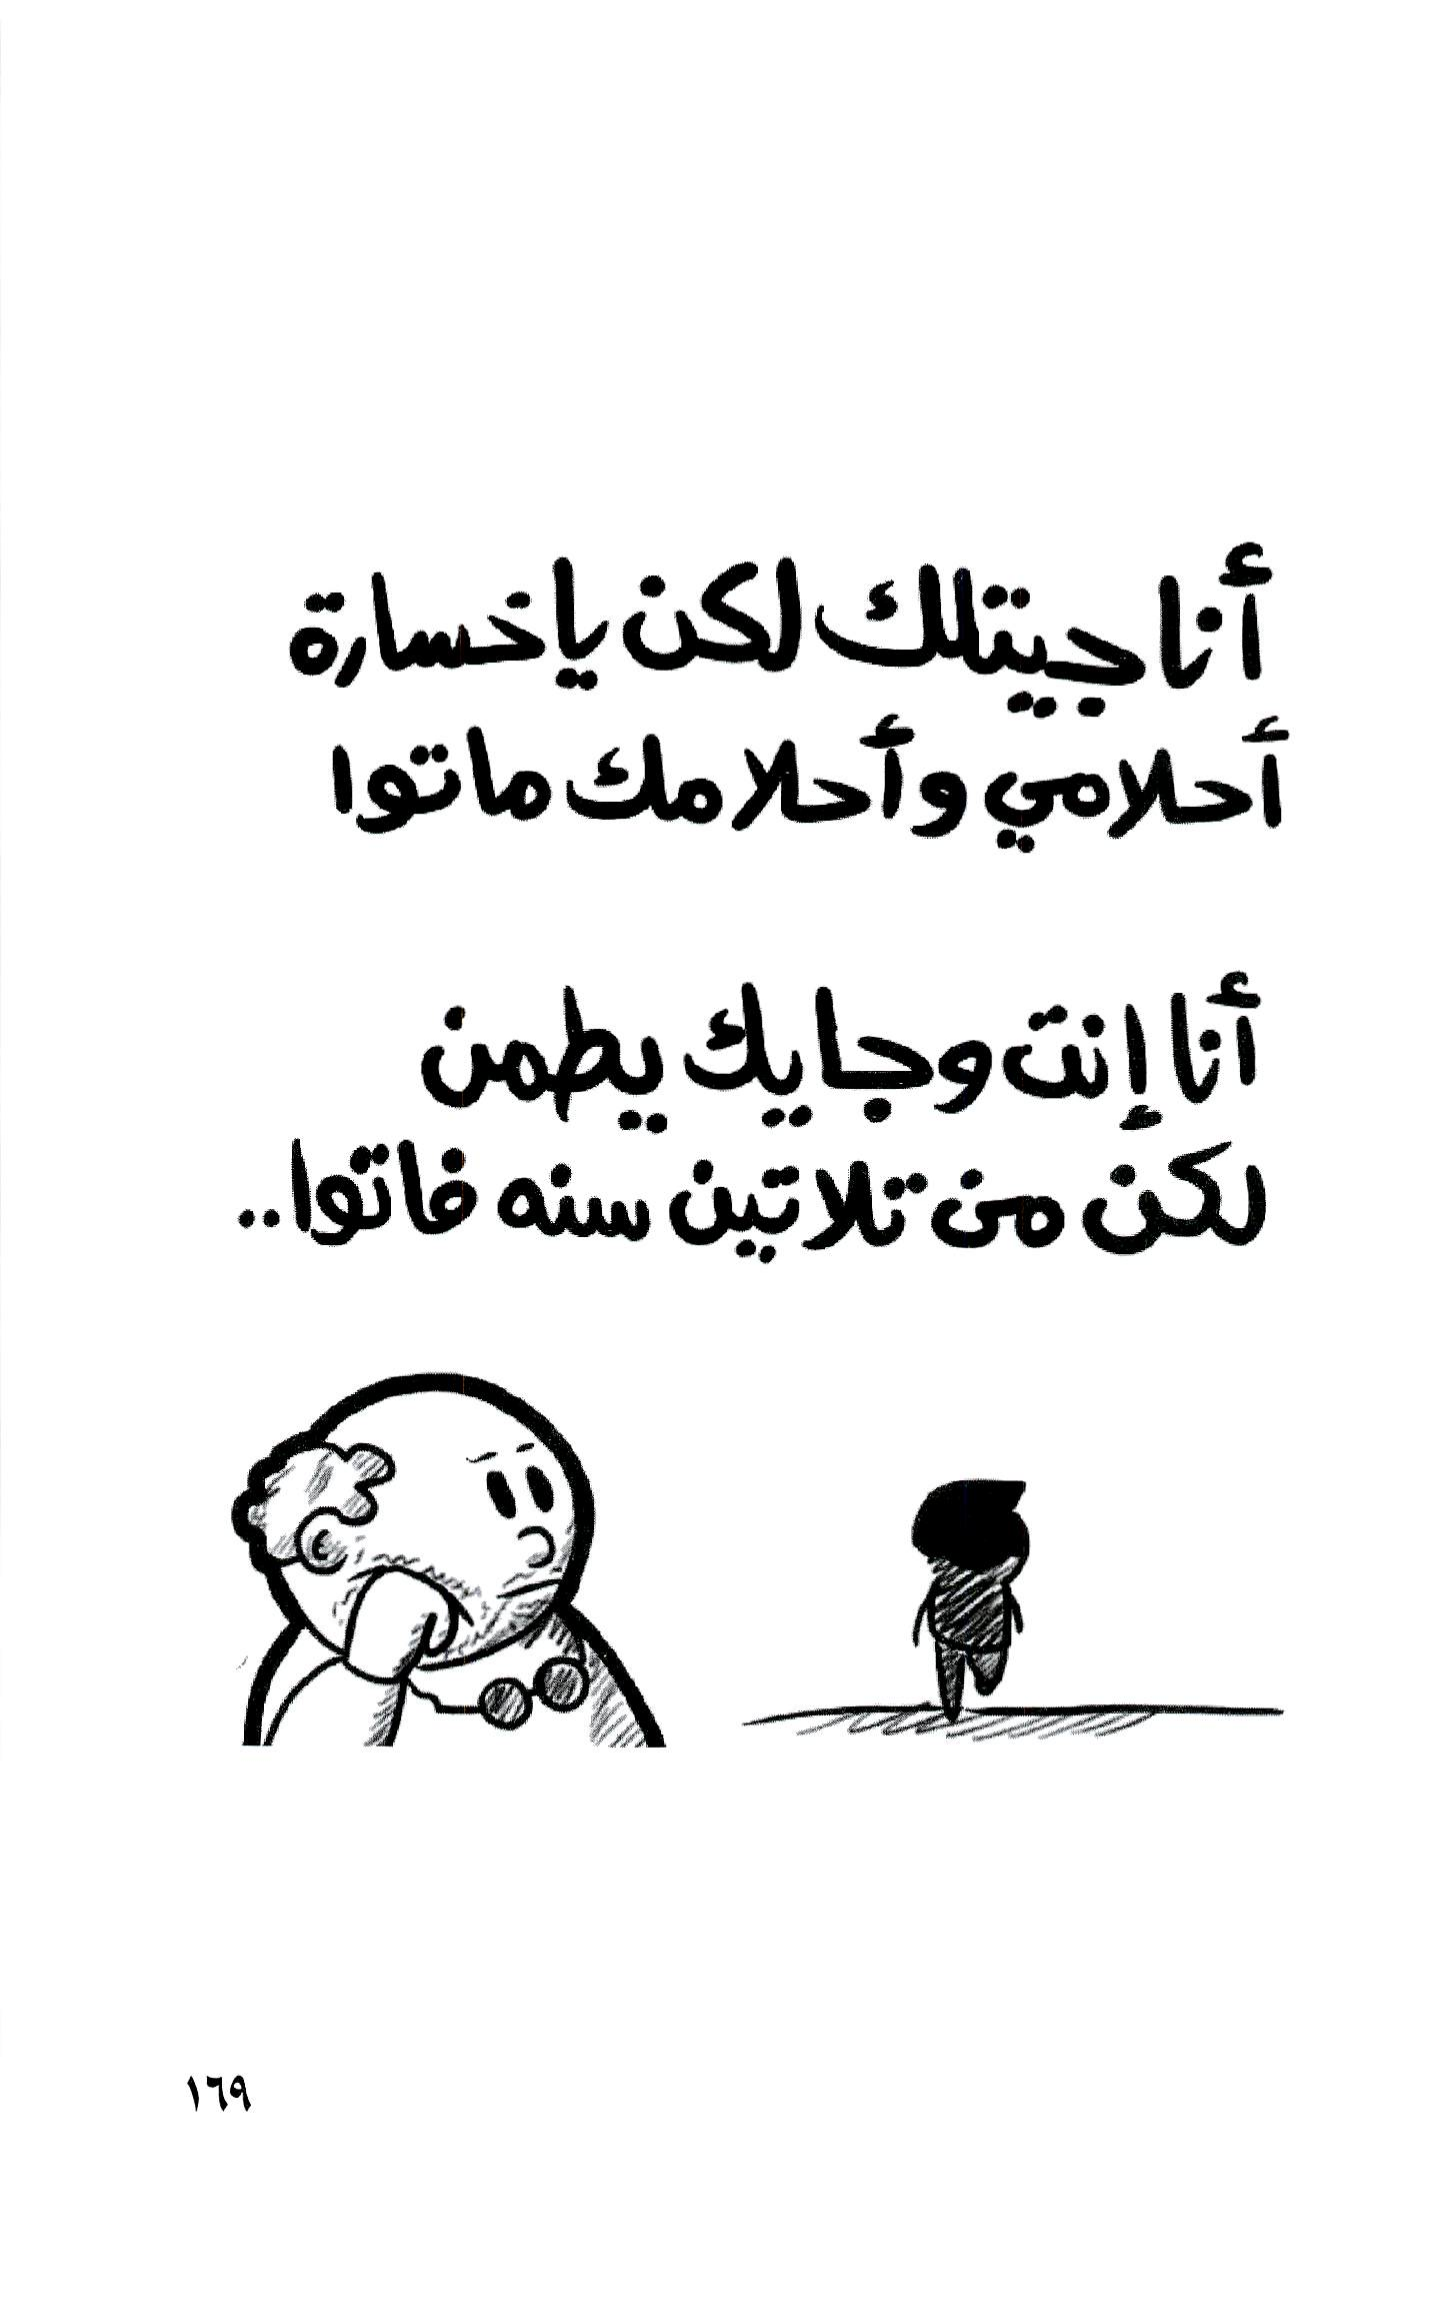 أنا جيتلك لكن يا خسارة
أحلامي وأحلامك ماتوا
أنا إنت وجايك يطمن
لكن من تلاتين سنه فاتوا..
١٦٩